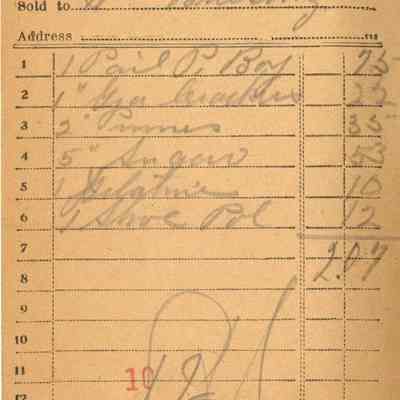 Sold to
Address
1 1 Pail P. Boy 75
2 1 " Crackers 22
3 2 " Prunes 35
4 5 " Sugar 53
5 1 Gelatine 10
6 1 Shoe Pol 12
7 2.07
8
9
10
11 10
12